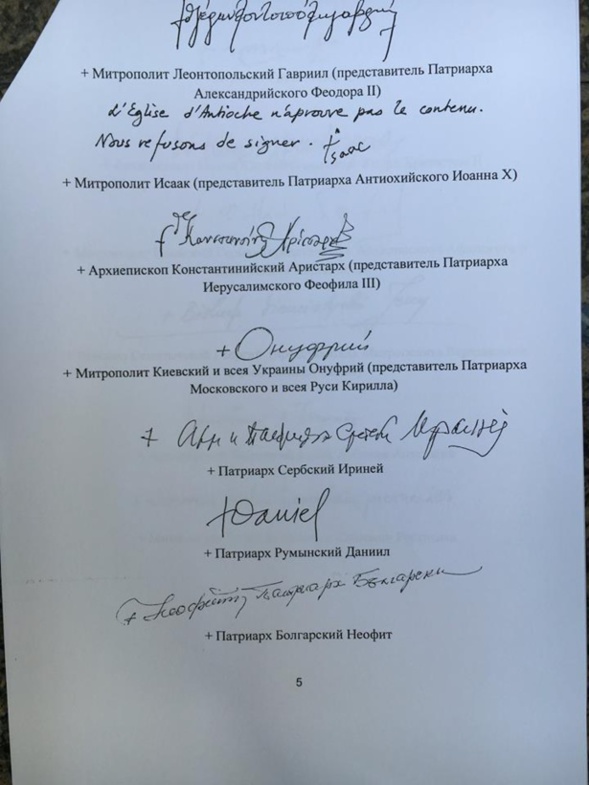 + Митрополит Леонтопольский Гавриил (представитель Патриарха
Александрийского Феодора II)
L'Eglise d'Antioche n'aprouve pas le contenu.
Nous refusons de signer. + Isaac
+ Митрополит Исаак (представитель Патриарха Антиохийского Иоанна X)
+ Архиепископ Константинийский Аристарх (представитель Патриарха
Иерусалимского Феофила III)
+ Онуфрий
+ Митрополит Киевский и всея Украины Онуфрий (представитель Патриарха
Московского и всея Руси Кирилла)
+ Патриарх Сербский Ириней
+ Daniel
+ Патриарх Румынский Даниил
+ Неофит Патриарх Български
+ Патриарх Болгарский Неофит
5